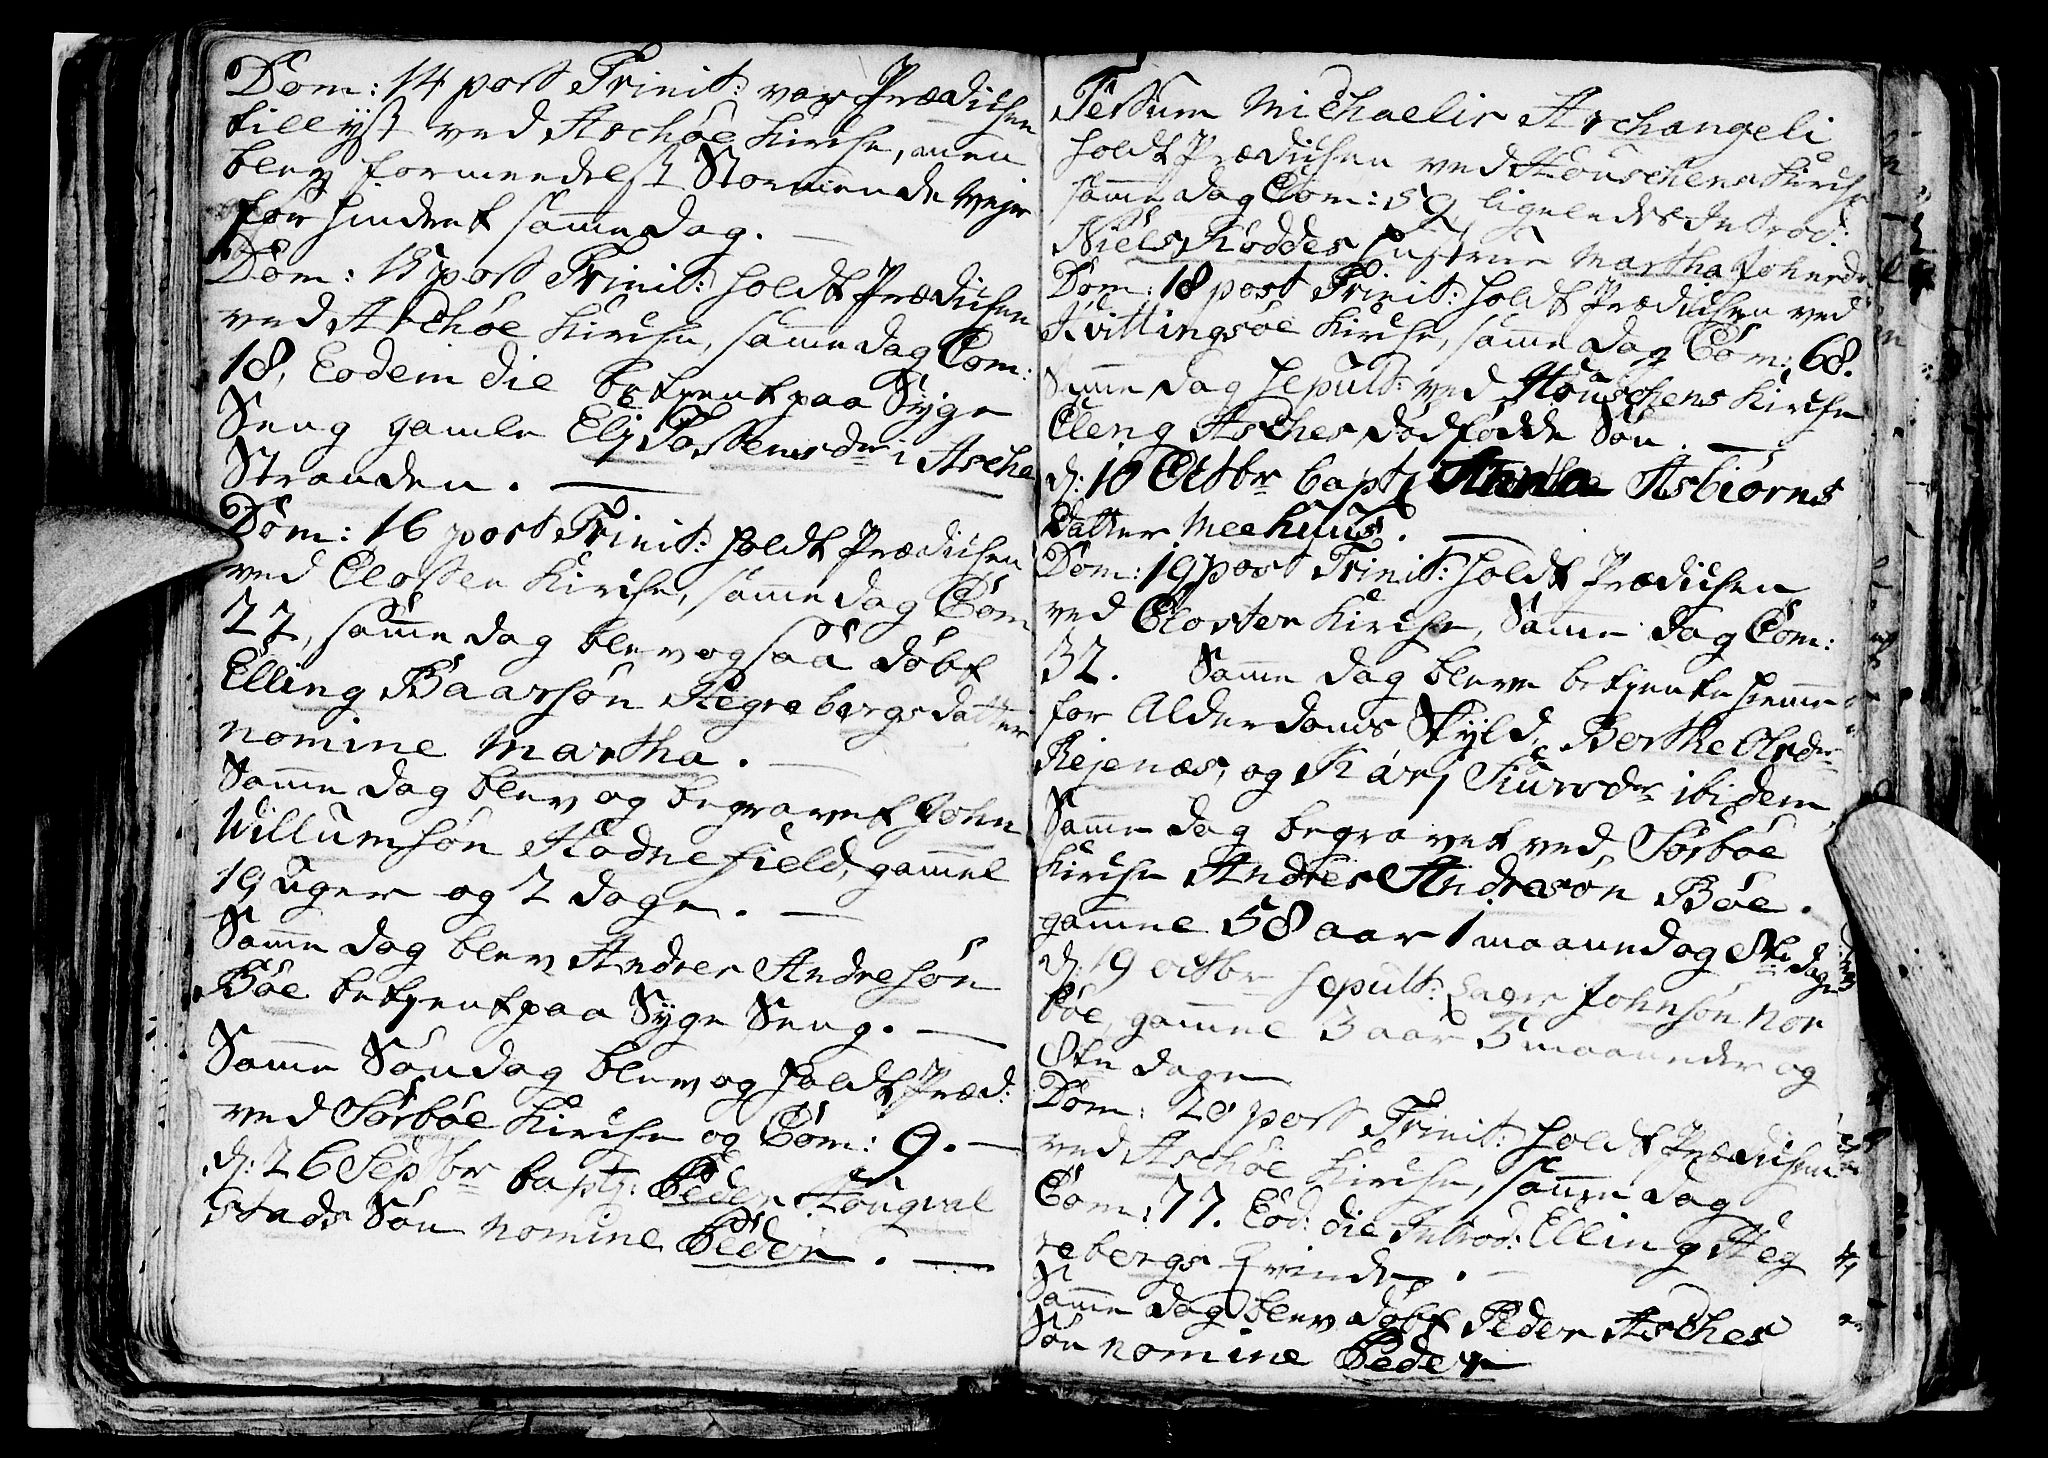 Dom: 14 post Trinit: var Prædichen
tillyst ved Aschöe Kirche, men
blev formedelst Stormende Vejr
forhindret samme dag.
Dom: 15 post Trinit: holdt Prædichen
ved Aschöe Kirche, samme dag Com:
18, Eodem die betjent paa Syge
Seng gamle Elj Tostensdr i Asche
Stranden.
Dom: 16 post Trinit: holdt Prædichen
ved Closter Kirche, samme dag Com
22, samme dag blev ogsaa döbt
Elling Baarsön Hegrebergs datter
nomine Martha.
Samme dag blev og begravet John
Willumsön Hodnefield, gammel
19 uger og 2 dage.
Samme dag blev Andres Andresön
Böe betjent paa Syge Seng.
Samme Söndag blev og holdt Præd:
ved Sörböe Kirche og Com: 9.
d: 26 Septbr baptz: Peder
stads Sön nomine Peder.
Festum Michaelis Archangeli
holdt Prædichen ved Houschens Kirche
samme dag Com: 59, ligeledes Introd:
Niels Kodder hustrue Martha Johnsdr
Dom: 18 post Trinit: holdt Prædichen ved
Kvittingsöe Kirche, samme dag Com: 68.
Samme dag sepult: ved Houschens Kirche
Eleng Asches dödfödde Sön.
d: 10 Octbr bapt: Anna Asbiörns
datter Meehuus.
Dom: 19 post Trinit: holdt Prædichen
ved Closter Kirche, Samme dag Com:
32. Samme dag bleve betjente hiemme
for Alderdoms Skyld, Berthe Olsdr
Rejenæs, og Karj ibidem
Samme dag begravet ved Sörböe
Kirche Andres Andresön Böe.
gamme 58 aar 1 maaned og 8te dage
d: 19 octbr sepult: Johnsön Nor
böe, gamme 3 aar 5 maaneder og
8te dage
Dom: 20 post Trinit: holdt Prædichen
ved Aschöe Kirche, samme dag
Com: 77. Eod: die Introd: Elling Heg
rebergs Qvinde.
Samme dag blev döbt Peder Asches
Sön nomine Peder